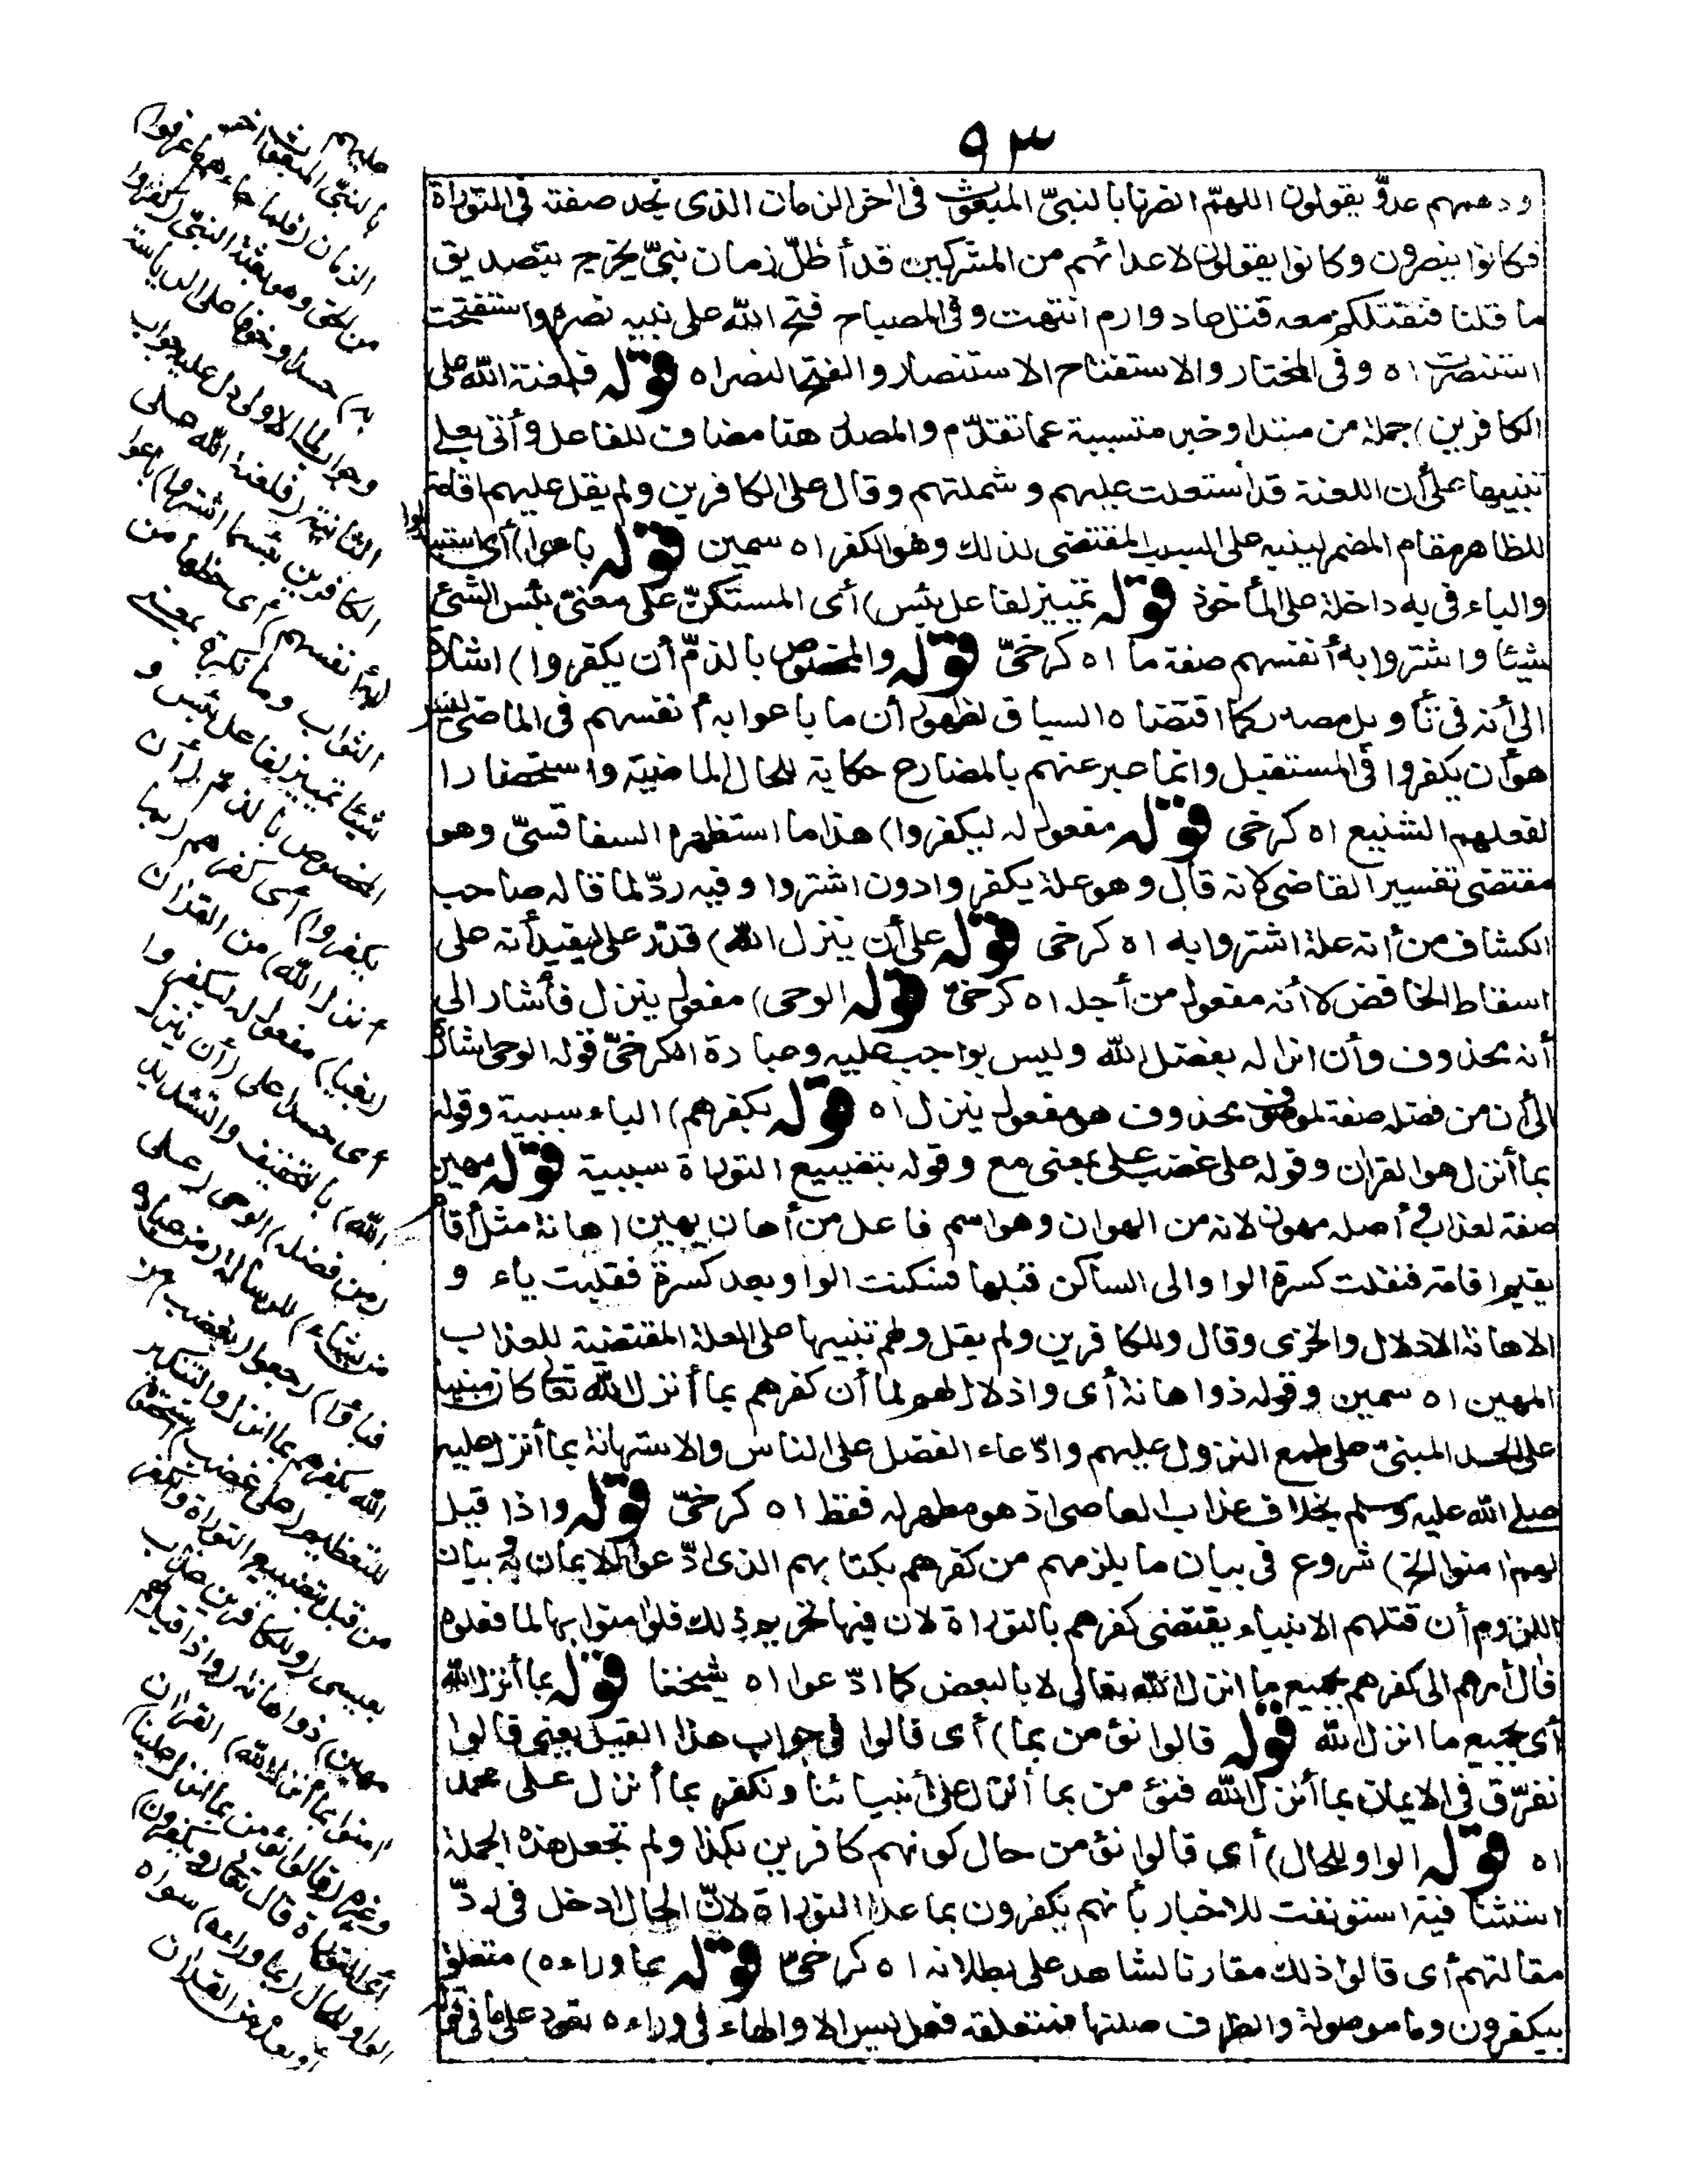 ٩٣
ودهمهم عدوّ يقولون اللهمّ انصرنا بالنبيّ المبعوث فى اخر الزمان الذى نجد صفته فى التوراة
فكانوا ينصرون وكانوا يقولون لاعدائهم من المشركين قد أظلّ زمان نبيّ يخرج بتصديق
ما قلنا فنقتلكم معه قتل عاد وارم انتهت وفى المصباح فتح الله على نبيه نصره واستفتحت
استنصرت اه وفى المختار والاستفتاح الاستنصار والفتح النصر اه قوله فلعنة الله على
الكافرين) جملة من مبتدا وخبر متسببة عما تقدّم والمصدر هنا مضاف للفاعل وأتى بعلى
تنبيها على أن اللعنة قد استعلت عليهم وشملتهم وقال على الكافرين ولم يقل عليهم اقامة
للظاهر مقام المضمر لينبه على السبب المقتضى لذلك وهو الكفر اه سمين قوله باعوا) أى استبدلوا
والباء فى به داخلة على المأخوذ قوله تمييز لفاعل بئس) أى المستكنّ على معنى بئس الشئ
شيئا واشتروا به أنفسهم صفة ما اه كرخىّ قوله والمخصوص بالذمّ أن يكفروا) اشارة
الى أنه فى تأويل مصدر كما اقتضاه السياق لظهور أن ما باعوا به أنفسهم فى الماضى ليس
هو أن يكفروا فى المستقبل وانما عبر عنهم بالمضارع حكاية للحال الماضية واستحضارا
لفعلهم الشنيع اه كرخى قوله مفعول له ليكفروا) هذا ما استظهره السفاقسىّ وهو
مقتضى تفسير القاضى لانه قال وهو علة يكفروا دون اشتروا وفيه ردّ لما قاله صاحب
الكشاف من أنه علة اشتروا به اه كرخى قوله على أن ينزل الله) قدّر على ليفيد أنه على
اسقاط الخافض لا أنه مفعول من أجله اه كرخىّ قوله الوحى) مفعول ينزل فأشار الى
أنه محذوف وأن انزاله بفضل الله وليس بواجب عليه وعبارة الكرخىّ قوله الوحى اشارة
الى أن من فضله صفة لموصوف محذوف هو مفعول ينزل اه قوله بكفرهم) الباء سببية وقوله
بما أنزل هو القران وقوله على غضب على بمعنى مع وقوله بتضييع التوراة سببية قوله مهين
صفة لعذاب وأصله مهون لانه من الهوان وهو اسم فاعل من أهان يهين اهانة مثل أقام
يقيم اقامة فنقلت كسرة الواو الى الساكن قبلها فسكنت الواو بعد كسرة فقلبت ياء و
الاهانة الاذلال والخزى وقال وللكافرين ولم يقل ولهم تنبيها على العلة المقتضية للعذاب
المهين اه سمين وقوله ذو اهانة أى واذلال لهم لما أن كفرهم بما أنزل الله تعالى كان مبنيا
على الحسد المبنىّ على طمع النزول عليهم وادّعاء الفضل على الناس والاستهانة بما أنزل عليه
صلى الله عليه وسلم بخلاف عذاب العاصى اذ هو مطهر له فقط اه كرخىّ قوله واذا قيل
لهم امنوا الخ) شروع فى بيان ما يلزمهم من كفرهم بكتابهم الذى ادّعوا الايمان به وبيان
اللزوم أن قتلهم الانبياء يقتضى كفرهم بالتوراة لان فيها تحريم ذلك فلو امنوا بها لما فعلوه
فال أمرهم الى كفرهم بجميع ما انزل الله تعالى لا بالبعض كما ادّعوا اه شيخنا قوله بما أنزل الله
أى بجميع ما انزل الله قوله قالوا نؤمن بما) أى قالوا فى جواب هذا القيل يعنى قالوا
نفرّق فى الايمان بما أنزل الله فنؤمن بما أنزل على أنبيائنا ونكفر بما أنزل على محمد
اه قوله الواو للحال) أى قالوا نؤمن حال كونهم كافرين بكذا ولم تجعل هذه الجملة
استئنافية استؤنفت للاخبار بأنهم يكفرون بما عدا التوراة لانّ الحال ادخل فى ردّ
مقالتهم أى قالوا ذلك مقارنا لشاهد على بطلانه اه كرخىّ قوله بما وراءه) متعلق
بيكفرون وما موصولة والظرف صلتها فمتعلقه فعل ليس الا والهاء فى وراءه تعود على ما فى قوله
عليهم
بالنبىّ المبعوث اخر
الزمان (فلما جاءهم ما عرفوا)
من الحق وهو بعثة النبىّ (كفروا
به) حسدا وخوفا على الرياسة
وجواب لما الاولى دل عليه جواب
الثانية (فلعنة الله على
الكافرين بئسما اشتروا) باعوا
(به أنفسهم) أى حظها من
الثواب وما نكرة بمعنى
شيئا تمييز لفاعل بئس و
المخصوص بالذمّ (أن
يكفروا) أى كفرهم (بما
أنزل الله) من القران
(بغيا) مفعول له ليكفروا
أى حسدا على (أن ينزل
الله) بالتخفيف والتشديد
(من فضله) الوحى (على
من يشاء) للرسالة (من عباده
فباؤا) رجعوا (بغضب) من
الله بكفرهم بما انزل والتنكير
للتعظيم (على غضب) استحقوه
من قبل بتضييع التوراة والكفر
بعيسى (وللكافرين عذاب
مهين) ذو اهانة (واذا قيل لهم
امنوا بما أنزل الله) القران
وغيره (قالوا نؤمن بما انزل علينا)
أى التوراة قال تعالى (ويكفرون)
الواو للحال (بما وراءه) سواه
أو بعده من القران